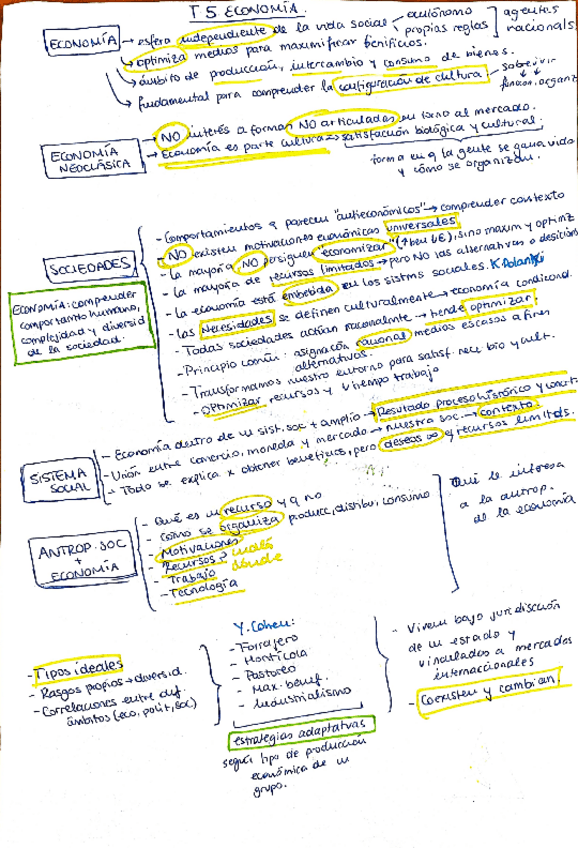 T5 ECONOMÍA.
ECONOMÍA
→ esfera independiente de la vida social
autónomo
propias reglas
agentes
racionals
↳ optimiza medios para maximificar benificios.
↳ ámbito de producción, intercambio y consumo de bienes.
↳ fundamental para comprender la configuración de cultura
sobrevivir
organiz
ECONOMÍA
NEOCLÁSICA
→ NO interés a formas NO articuladas en torno al mercado.
→ Economía es parte cultura → satisfacción biológica y cultural.
forma en q la gente se gana vida
y cómo se organizan.
SOCIEDADES
- Comportamientos q parecen "antieconómicos" → comprender contexto
- NO existen motivaciones económicas universales
- La mayoría NO persiguen "economizar" sino maxim y optimiz
- La mayoría de recursos limitados → pero NO las alternativas o desiciones
- La economía está embebida en los sistms sociales. K.Polanyi
- Las Necesidades se definen culturalmente → economía condicond.
- Todas sociedades actúan racionalmnte → tiende optimizar.
- Principio común: asignación racional medios escasos a fines
alternativos.
- Transformamos nuestro entorno para satisf. nece bio y cult.
- Optimizar recursos y tiempo trabajo
ECONOMÍA: comprender
comportamto humano,
complejidad y diversid
de la sociedad.
SISTEMA
SOCIAL
- Economía dentro de un sist. soc + amplio → Resultado proceso histórico y
- Unión entre comercio, moneda y mercado → nuestra soc. → contexto
- Todo se explica x obtener beneficios, pero deseos ∞ y recursos limitds.
ANTROP. SOC
+
ECONOMÍA
- Qué es un recurso y q no
- Cómo se organiza producc, distribu, consumo
- Motivaciones
- Recursos?
dónde
- Trabajo
- Tecnología
Qué le interesa
a la antrop.
de la economía
- Tipos ideales
- Rasgos propios → diversid.
- Correlaciones entre dif.
ámbitos (eco, polít, soc)
Y. Cohen:
- Forrajero
- Hortícola
- Pastoreo
- Max. benef.
- Industrialismo
estrategias adaptativas
según tipo de producción
económica de un
grupo.
- Viven bajo jurisdicción
de un estado y
vinculados a mercados
internacionales
- Coexisten y cambian